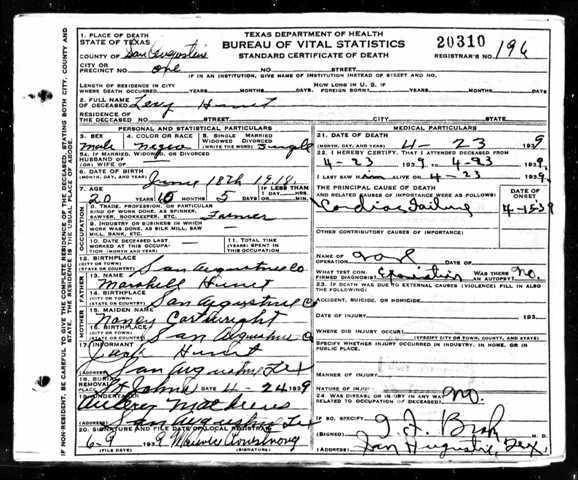 TEXAS DEPARTMENT OF HEALTH
BUREAU OF VITAL STATISTICS
STANDARD CERTIFICATE OF DEATH
20310
REGISTRAR'S NO. 196
1. PLACE OF DEATH
STATE OF TEXAS
COUNTY OF San Augustine
CITY OR PRECINCT NO. one
IF IN AN INSTITUTION, GIVE NAME OF INSTITUTION INSTEAD OF STREET AND NO.
LENGTH OF RESIDENCE WHERE DEATH OCCURRED YEARS MONTHS DAYS
HOW LONG IN U. S. IF FOREIGN BORN? YEARS MONTHS DAYS
2. FULL NAME OF DECEASED Hunt
RESIDENCE OF THE DECEASED STREET AND NO. CITY COUNTY STATE
PERSONAL AND STATISTICAL PARTICULARS
3. SEX Male
4. COLOR OR RACE Negro
5. SINGLE MARRIED WIDOWED DIVORCED (WRITE THE WORD) Single
5A. IF MARRIED, WIDOWED, OR DIVORCED
HUSBAND OF (OR) WIFE OF
6. DATE OF BIRTH (MONTH, DAY, AND YEAR) June 18th 1918
7. AGE YEARS MONTHS DAYS IF LESS THAN 1 DAY
20 10 5 HOURS MIN
8. TRADE, PROFESSION, OR PARTICULAR KIND OF WORK DONE, AS SPINNER, SAWYER, BOOKKEEPER, ETC. Farmer
9. INDUSTRY OR BUSINESS IN WHICH WORK WAS DONE, AS SILK MILL, SAW MILL, BANK, ETC.
10. DATE DECEASED LAST WORKED AT THIS OCCUPATION
11. TOTAL TIME (YEARS) SPENT IN THIS OCCUPATION
12. BIRTHPLACE (CITY OR TOWN) (STATE OR COUNTRY) San Augustine Co
13. NAME Marshell Hunt
14. BIRTHPLACE (CITY OR TOWN) (STATE OR COUNTRY) San Augustine Co
15. MAIDEN NAME Nancy Cartwright
16. BIRTHPLACE (CITY OR TOWN) (STATE OR COUNTRY) San Augustine Co
17. INFORMANT Hunt
San Augustine Tex
18. BURIAL REMOVAL St Johns DATE 4-24 1939
19. UNDERTAKER Aubrey Mathews
San Augustine Tex
20. SIGNATURE AND FILE DATE OF LOCAL REGISTRAR
6-9 1939
(FILE DATE) (SIGNATURE)
MEDICAL PARTICULARS
21. DATE OF DEATH (MONTH, DAY, AND YEAR) 4-23 1939
22. I HEREBY CERTIFY THAT I ATTENDED DECEASED FROM
4-23 1939 TO 4-23 1939
I LAST SAW him ALIVE ON 4-23 1939
THE PRINCIPAL CAUSE OF DEATH AND RELATED CAUSES OF IMPORTANCE WERE AS FOLLOWS: DATE OF ONSET
Cardiac Failure
OTHER CONTRIBUTORY CAUSES OF IMPORTANCE:
NAME OF OPERATION
WHAT TEST CONFIRMED DIAGNOSIS? WAS THERE AN AUTOPSY? no.
23. IF DEATH WAS DUE TO EXTERNAL CAUSES (VIOLENCE) FILL IN ALSO THE FOLLOWING:
ACCIDENT, SUICIDE, OR HOMICIDE
DATE OF INJURY 19
WHERE DID INJURY OCCUR?
(SPECIFY CITY OR TOWN, COUNTY, AND STATE)
SPECIFY WHETHER INJURY OCCURRED IN INDUSTRY, IN HOME, OR IN PUBLIC PLACE.
MANNER OF INJURY
NATURE OF INJURY
24. WAS DISEASE OR INJURY IN ANY WAY RELATED TO OCCUPATION OF DECEASED? no.
IF SO, SPECIFY
(SIGNED) M. D.
San Augustine, Tex